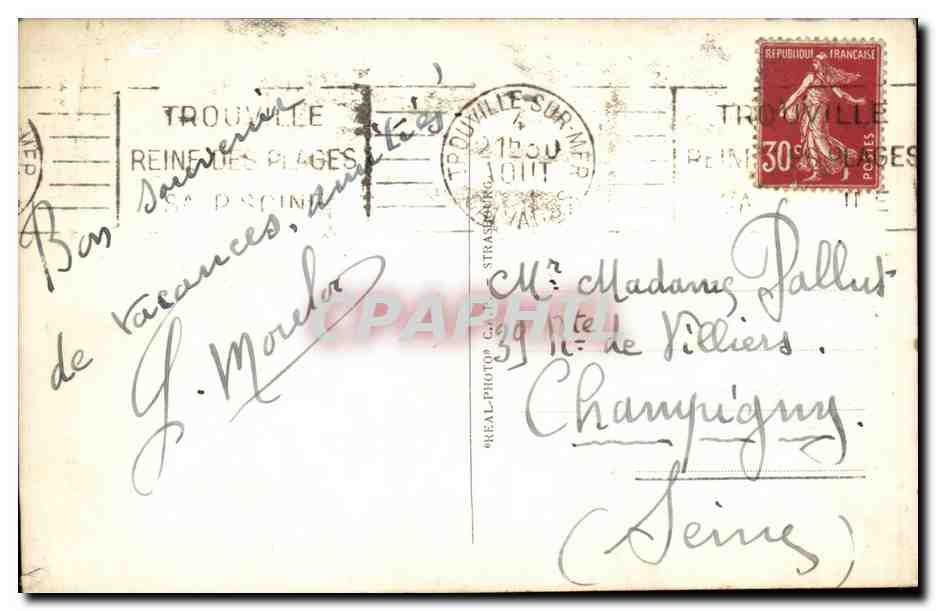 TROUVILLE
REINE DES PLAGES
SA PISCINE
TROUVILLE-SUR-MER
4
21h30
AOUT
TROUVILLE
REINE DES PLAGES
REPUBLIQUE FRANÇAISE
30c
POSTES
Bon souvenir
de vacances, amitiés.
G. Morelot
"REAL-PHOTO" C.A.P. STRASBOURG
CPAPHIL
Mr. Madame Pallut
39 Rte de Villiers.
Champigny.
(Seine)